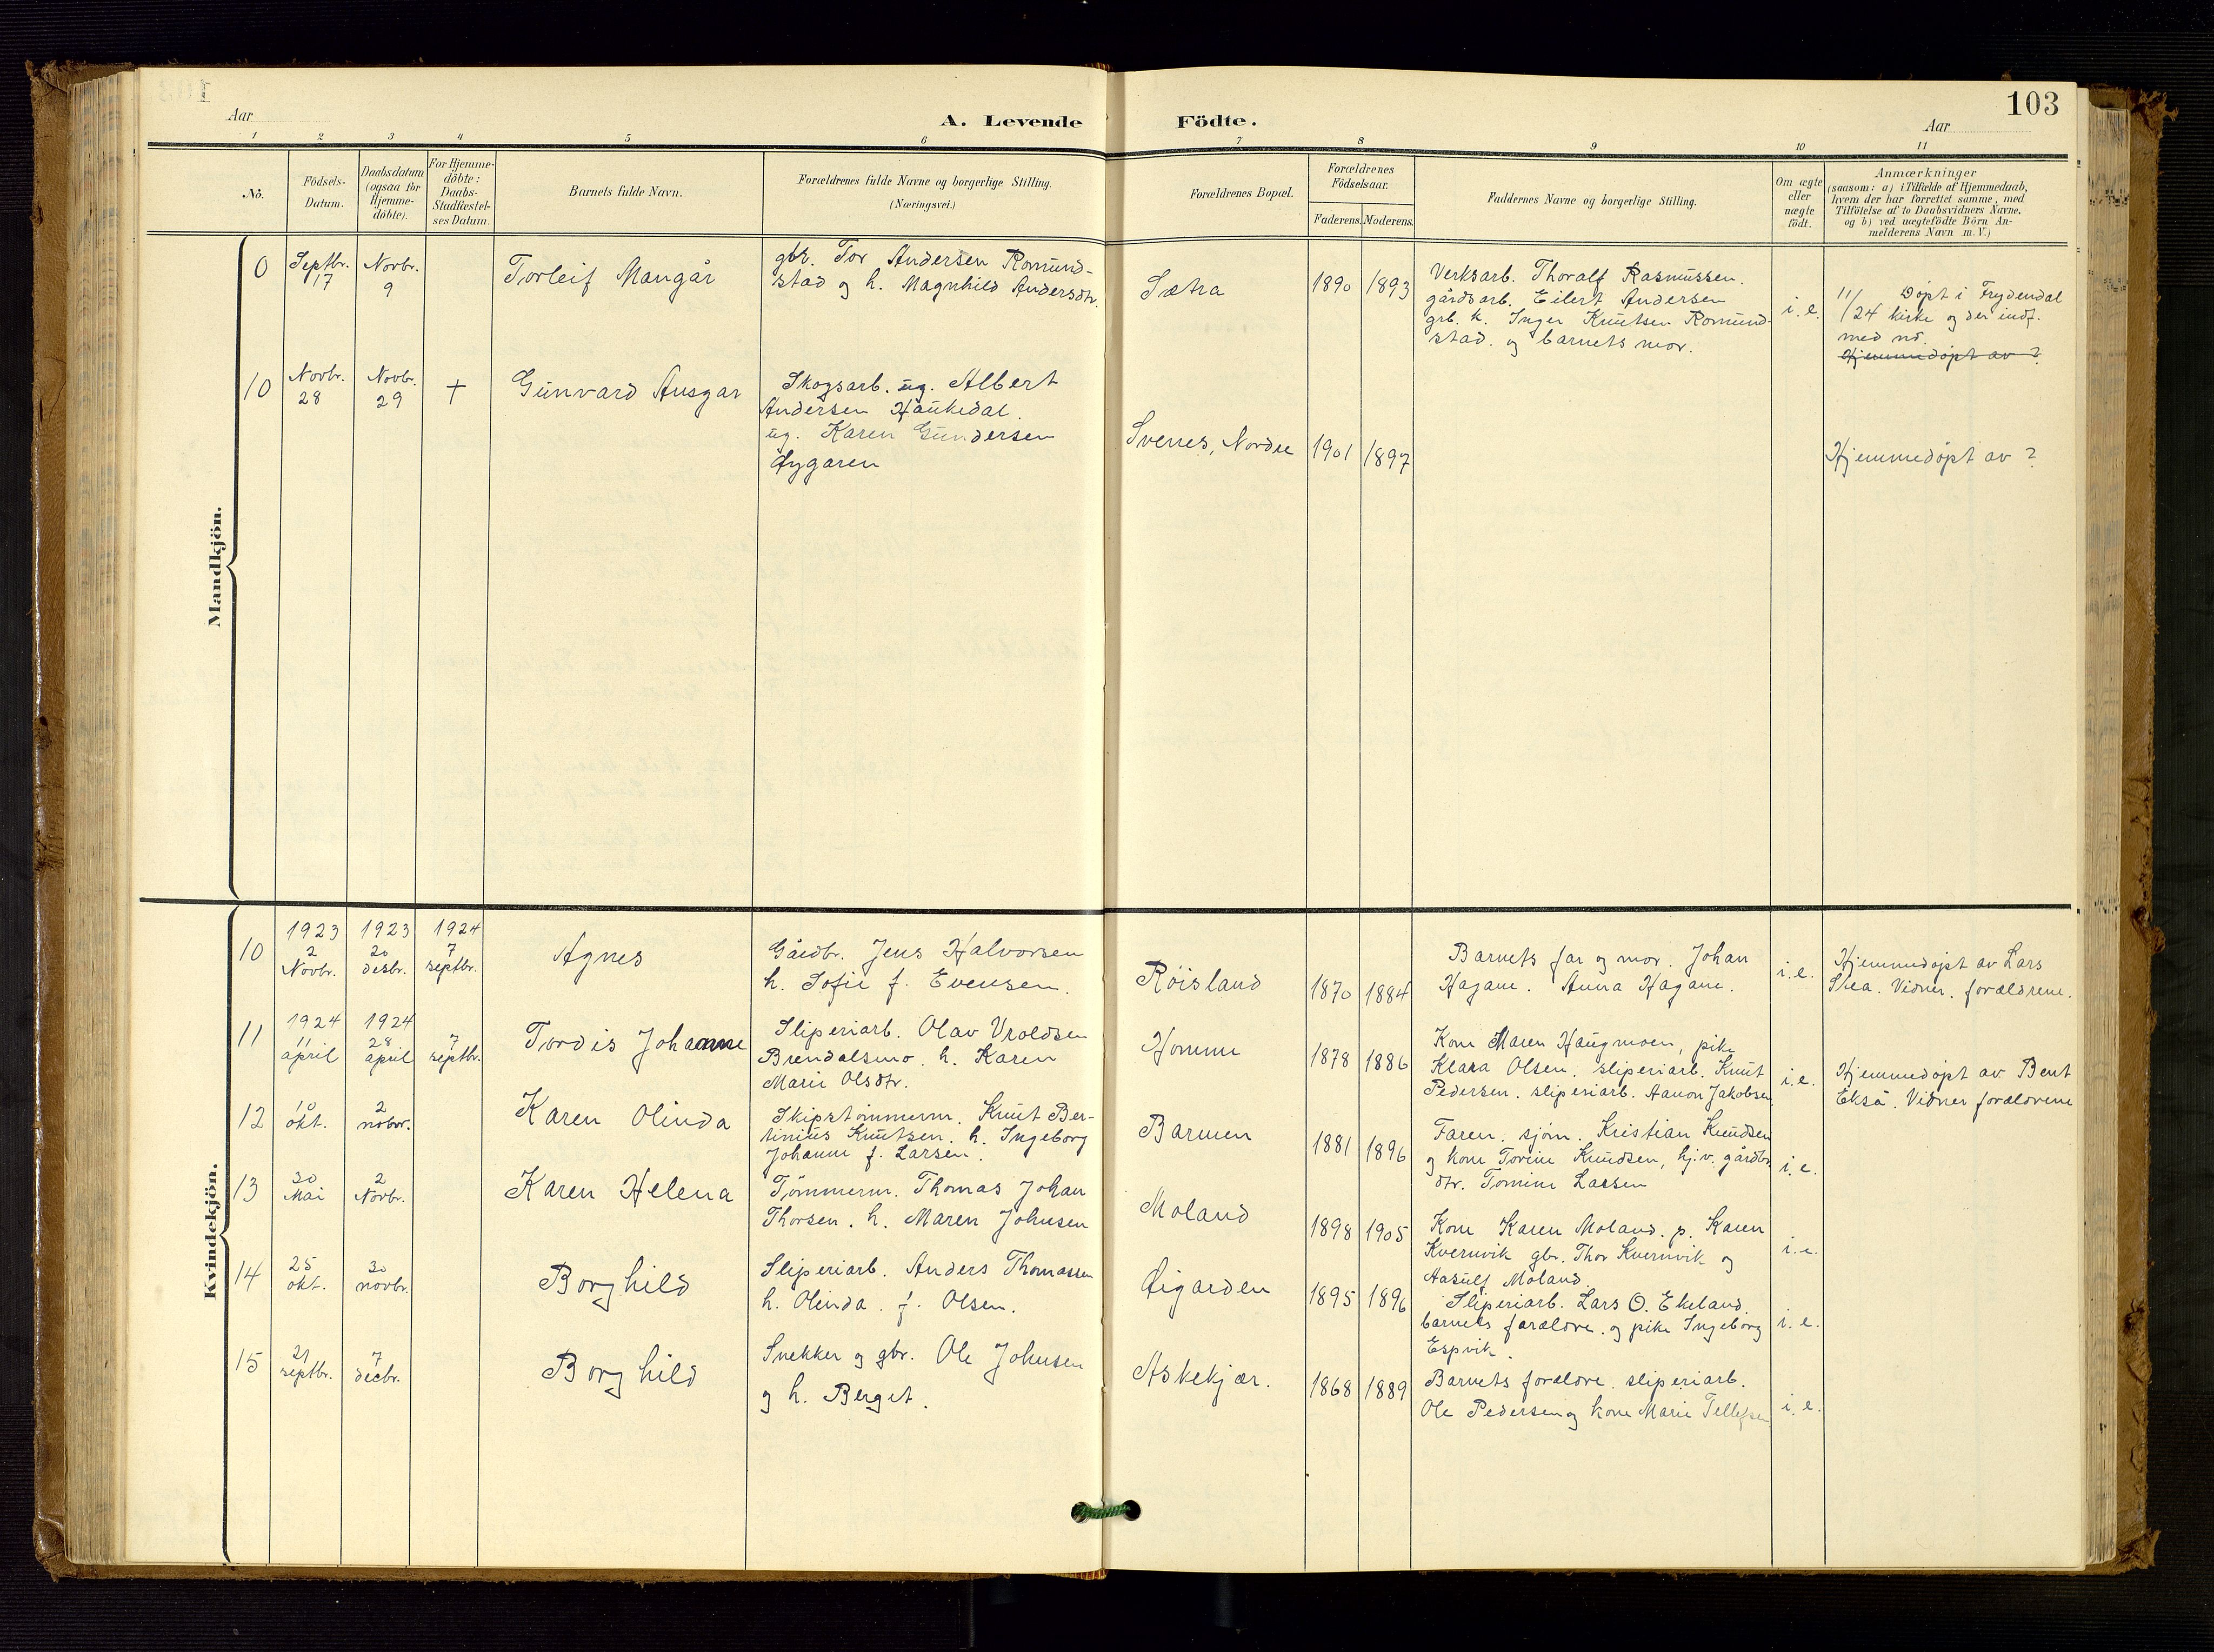 103
Aar
A. Levende Födte.
Aar
1 2 3 4 5 6 7 8 9 10 11
No.
Födsels-
Datum.
Daabsdatum
(ogsaa for
Hjemme-
döbte).
For Hjemme-
döbte:
Daabs-
Stadfæstel-
ses Datum.
Barnets fulde Navn.
Forældrenes fulde Navne og borgerlige Stilling.
(Næringsvei.)
Forældrenes Bopæl.
Forældrenes
Födselsaar.
Faderens. Moderens.
Faddernes Navne og borgerlige Stilling.
Om ægte
eller
uægte
födt.
Anmærkninger
(saasom: a) i Tilfælde af Hjemmedaab,
hvem der har forrettet samme, med
Tilföielse af to Daabsvidners Navne,
og b) ved uægtefödte Börn An-
melderens Navn m. V.)
Mandkjön.
0
Septbr.
17
Novbr.
9
Torleif Mangår
gbr. Tor Andersen Romund-
stad og h. Magnhild Andersdtr.
Sætra
1890 1893
Verksarb. Thoralf Rasmussen.
gårdsarb. Eilert Andersen
grb. k. Inger Knutsen Romund-
stad. og barnets mor.
i. e.
11/24 Döpt i Frydendal
kirke og der indf.
med no.
Hjemmedöpt av ?
10
Novbr.
28
Novb.
29
+
Gunvard Ansgar
Skogsarb. ug. Albert
Andersen Haukedal.
ug. Karen Gundersen
Øygaren
Svenes, Nordre
1901 1897
Hjemmedöpt av ?
Kvindekjön.
10
1923
2
Novbr.
1923
20
desbr.
1924
7
septbr.
Agnes
Gårdbr. Jens Halvorsen
h. Sofie f. Evensen.
Röisland
1870 1884
Barnets far og mor. Johan
Hagane. Anna Hagane.
i. e.
Hjemmedöpt av Lars
. Vidner. forældrene.
11
1924
11
april
1924
28
april
7
septbr.
Tordis Johanne
Sliperiarb. Olav Vroldsen
Brendalsmo. h. Karen
Marie Olsdtr.
Homme
1878 1886
Kone Maren Haugmoen, pike
Klara Olsen. sliperiarb. Knut
Pedersen. sliperiarb. Aanon Jakobsen
i. e.
Hjemmedöpt av Bent
Ekså. Vidner forældrene
12
10
okt.
2
nobvr.
Karen Olinda
Skipstømmerm. Knut Ber-
tinius Knutsen. h. Ingeborg
Johanne f. Larsen.
Barmen
1881 1896
Faren. sjöm. Kristian Knudsen
og kone Torine Knudsen, hj.v. gårdbr.
dtr. Tomine Larsen
i. e.
13
30
Mai
2
Novbr.
Karen Helena
Tömmerm. Thomas Johan
Thorsen. h. Maren Johnsen
Moland
1898 1905
Kone Karen Moland. p. Karen
Kvernvik gbr. Thor Kvernvik og
Aasulf Moland.
i. e.
14
25
okt.
30
novbr.
Borghild
Sliperiarb. Anders Thomassen
h. Olinda. f. Olsen.
Øigarden
1895 1896
Sliperiarb. Lars O. Ekeland.
barnets forældre. og pike Ingeborg
Espvik.
i. e.
15
21
septbr.
7
decbr.
Borghild
Snekker og gbr. Ole Johnsen
og h. Berget.
Askekjær.
1868 1889
Barnets forældre. sliperiarb.
Ole Pedersen og kone Marie Tellefsen
i. e.